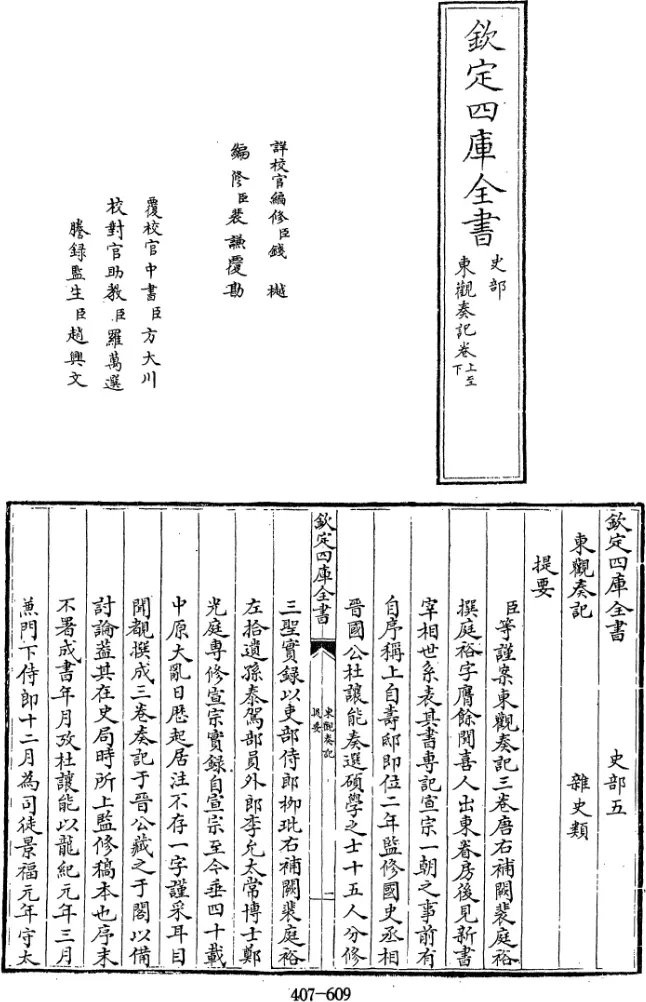 欽定四庫全書
史部
東觀奏記卷上至下
詳校官編修臣錢樾
編修臣裴謙覆勘
覆校官中書臣方大川
校對官助教臣羅萬選
謄録監生臣趙興文
欽定四庫全書 史部五
東觀奏記 雜史類
提要
臣等謹案東觀奏記三卷唐右補闕裴庭裕
撰庭裕字膺餘聞喜人出東眷房後見新書
宰相世系表其書專記宣宗一朝之事前有
自序稱上自壽邸即位二年監修國史丞相
晉國公杜讓能奏選碩學之士十五人分修
欽定四庫全書
東觀奏記
提要
一
三聖實録以吏部侍郎柳玭右補闕裴庭裕
左拾遺孫泰駕部員外郎李允太常博士鄭
光庭專修宣宗實録自宣宗至今垂四十載
中原大亂日厯起居注不存一字謹采耳目
聞覩撰成三卷奏記于晉公藏之于閣以備
討論蓋其在史局時所上監修稿本也序末
不署成書年月攷杜讓能以龍紀元年三月
兼門下侍郎十二月為司徒景福元年守太
407-609